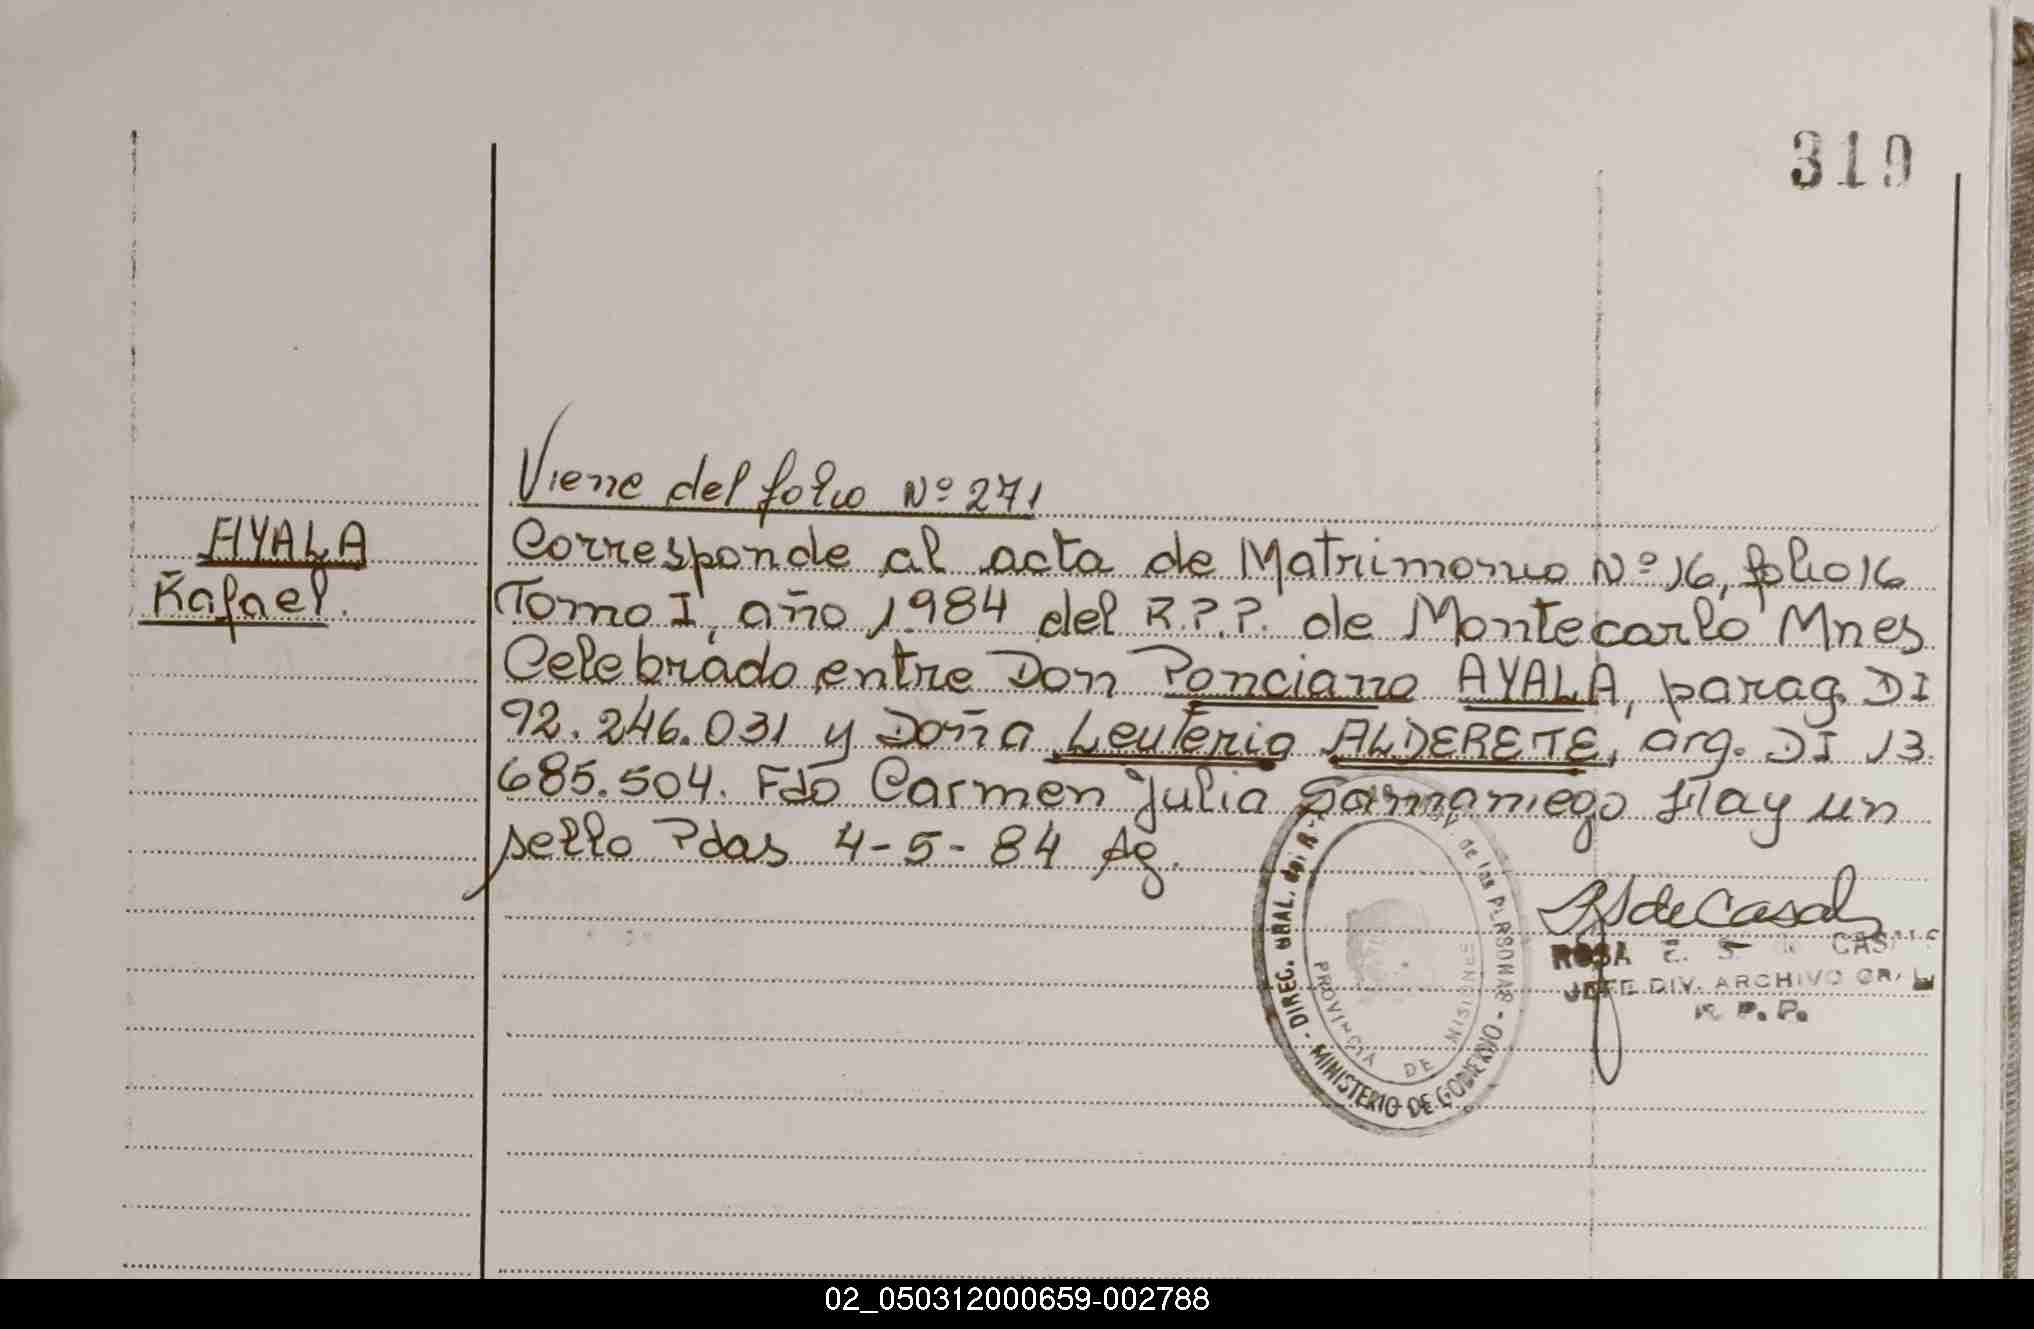 319
Viene del folio Nº 271
AYALA
Rafael.
Corresponde al acta de Matrimonio Nº 16, folio 16
Tomo I, año 1984 del R.P.P. de Montecarlo Mnes
Celebrado entre Don Ponciano AYALA, parag. DI
92.246.031 y Doña Leuteria ALDERETE, arg. DI 13.
685.504. Fdo Carmen Julia Samaniego Hay un
sello Pdas 4-5-84 Ag.
RS de Casals
ROSA E. S. CASALS
JEFE DIV. ARCHIVO GRAL
R. P. P.
DIREC. GRAL. del R. de las PERSONAS
- MINISTERIO DE GOBIERNO -
PROVINCIA DE MISIONES
02_050312000659-002788